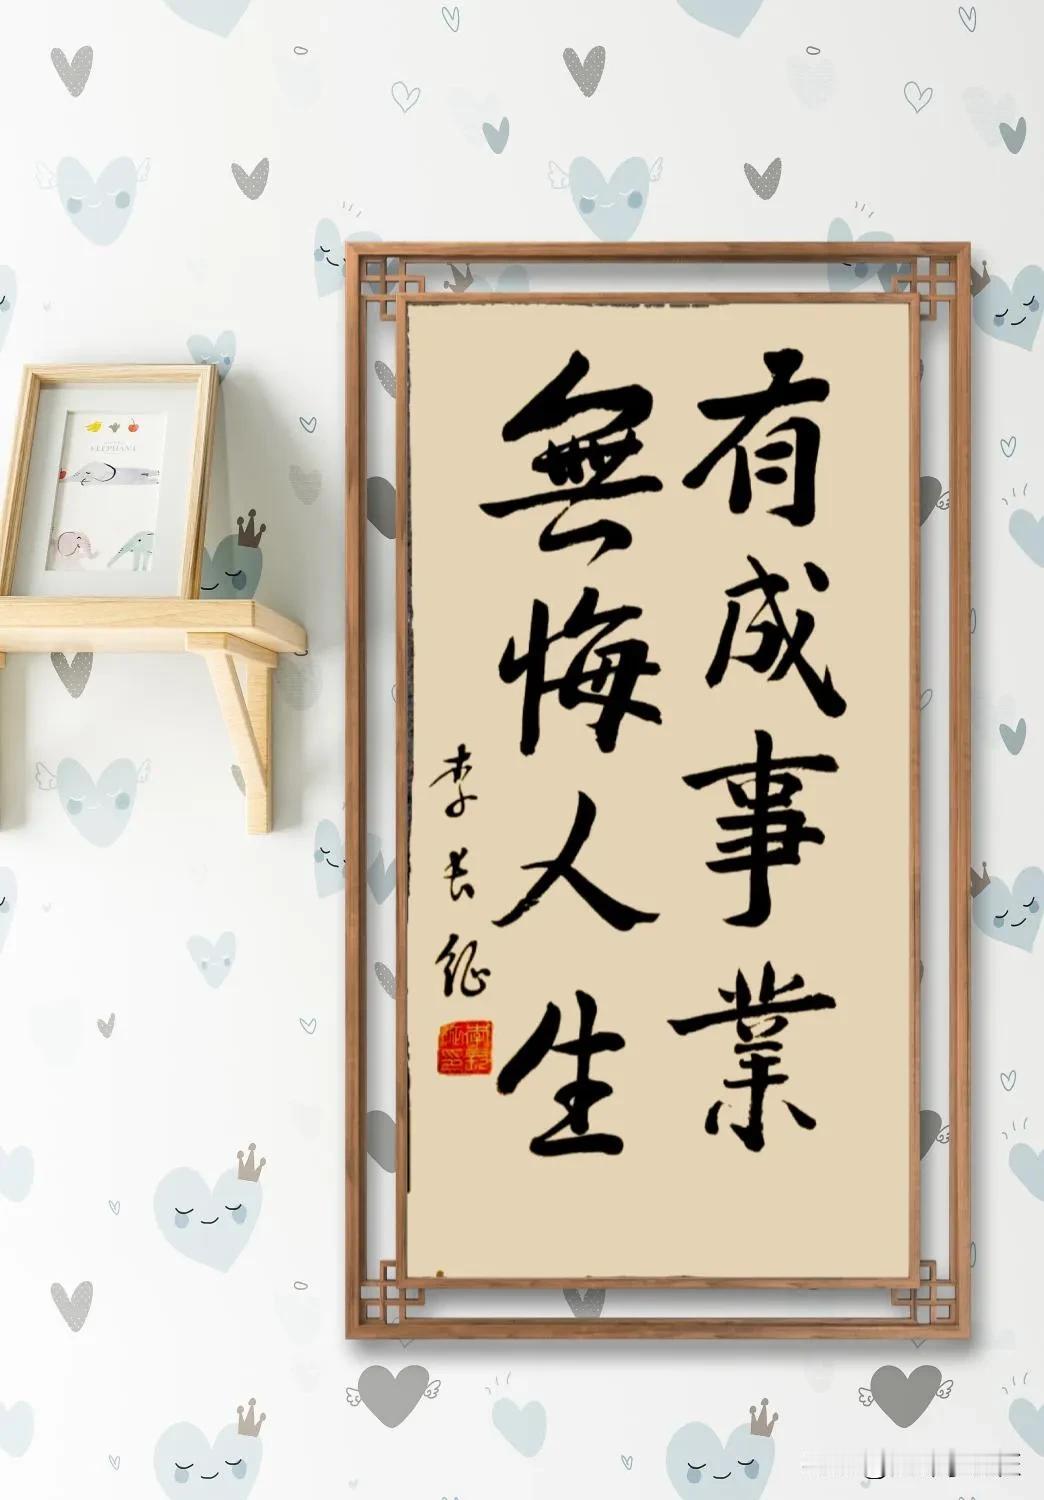 有成事業
無悔人生
李长征
ELEPHANT